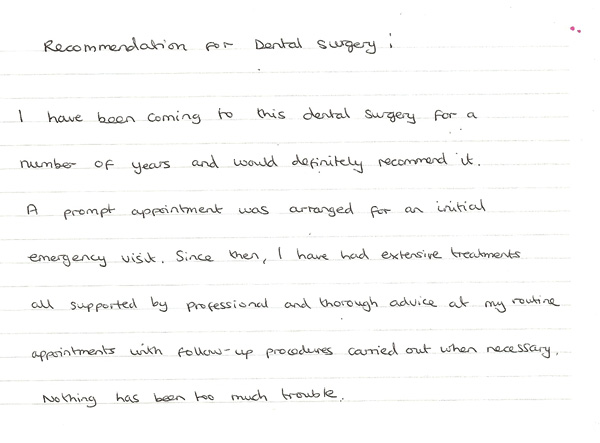 Recommendation for Dental Surgery :
I have been coming to this dental surgery for a
number of years and would definitely recommend it.
A prompt appointment was arranged for an initial
emergency visit. Since then, I have had extensive treatments
all supported by professional and thorough advice at my routine
appointments with follow-up procedures carried out when necessary.
Nothing has been too much trouble.